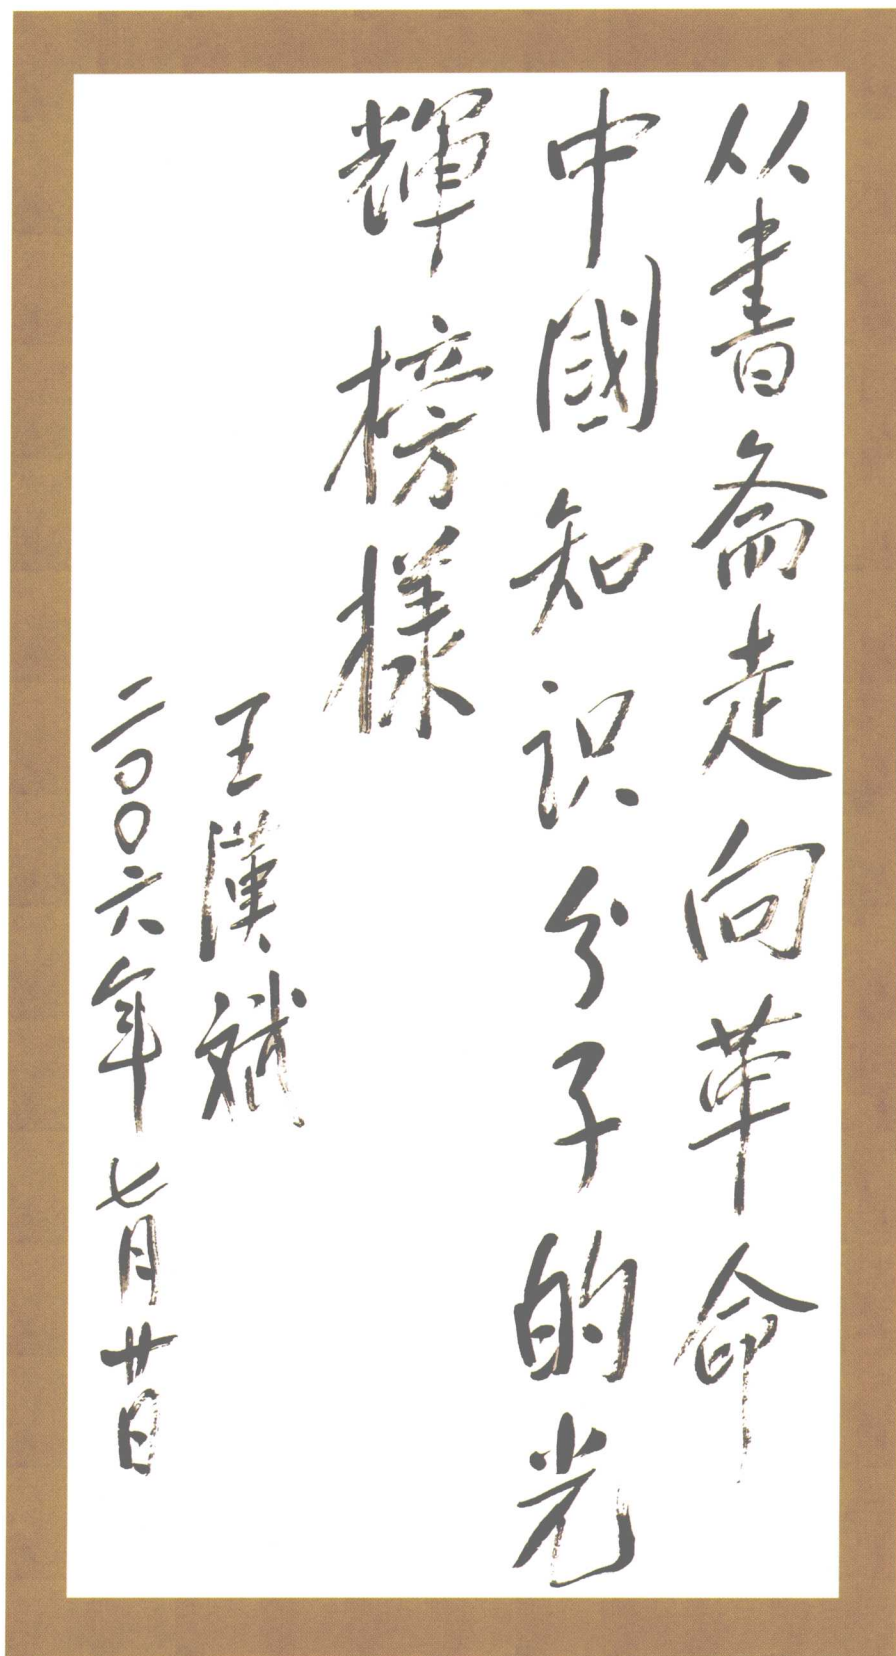 从書斋走向革命
中國知识分子的光
輝榜樣
王漢斌
二〇〇六年七月廿日